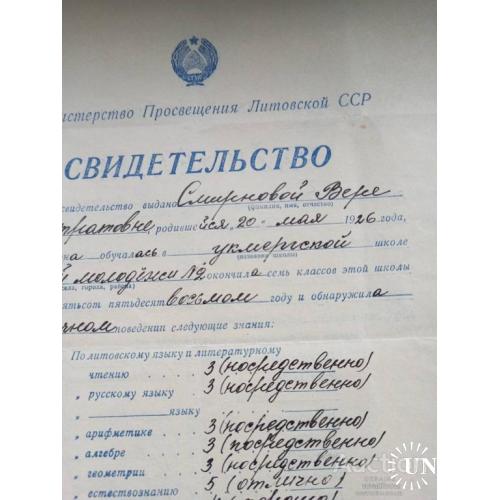 истерство Просвещения Литовской ССР
СВИДЕТЕЛЬСТВО
свидетельство выдано Смирновой Вере
(фамилия, имя, отчество)
тратовне, родившейся 20 мая 1926 года,
на обучалась в укмергской школе
(название школы)
й молодёжи №2 окончила семь классов этой школы
ла, города, района)
ятьсот пятьдесят восьмом году и обнаружила
чном поведении следующие знания:
По литовскому языку и литературному
чтению 3 (посредственно)
„ русскому языку 3 (посредственно)
„ языку
„ арифметике 3 (посредственно)
„ алгебре 3 (посредственно)
„ геометрии 3 (посредственно)
„ естествознанию 5 (отлично)
UN